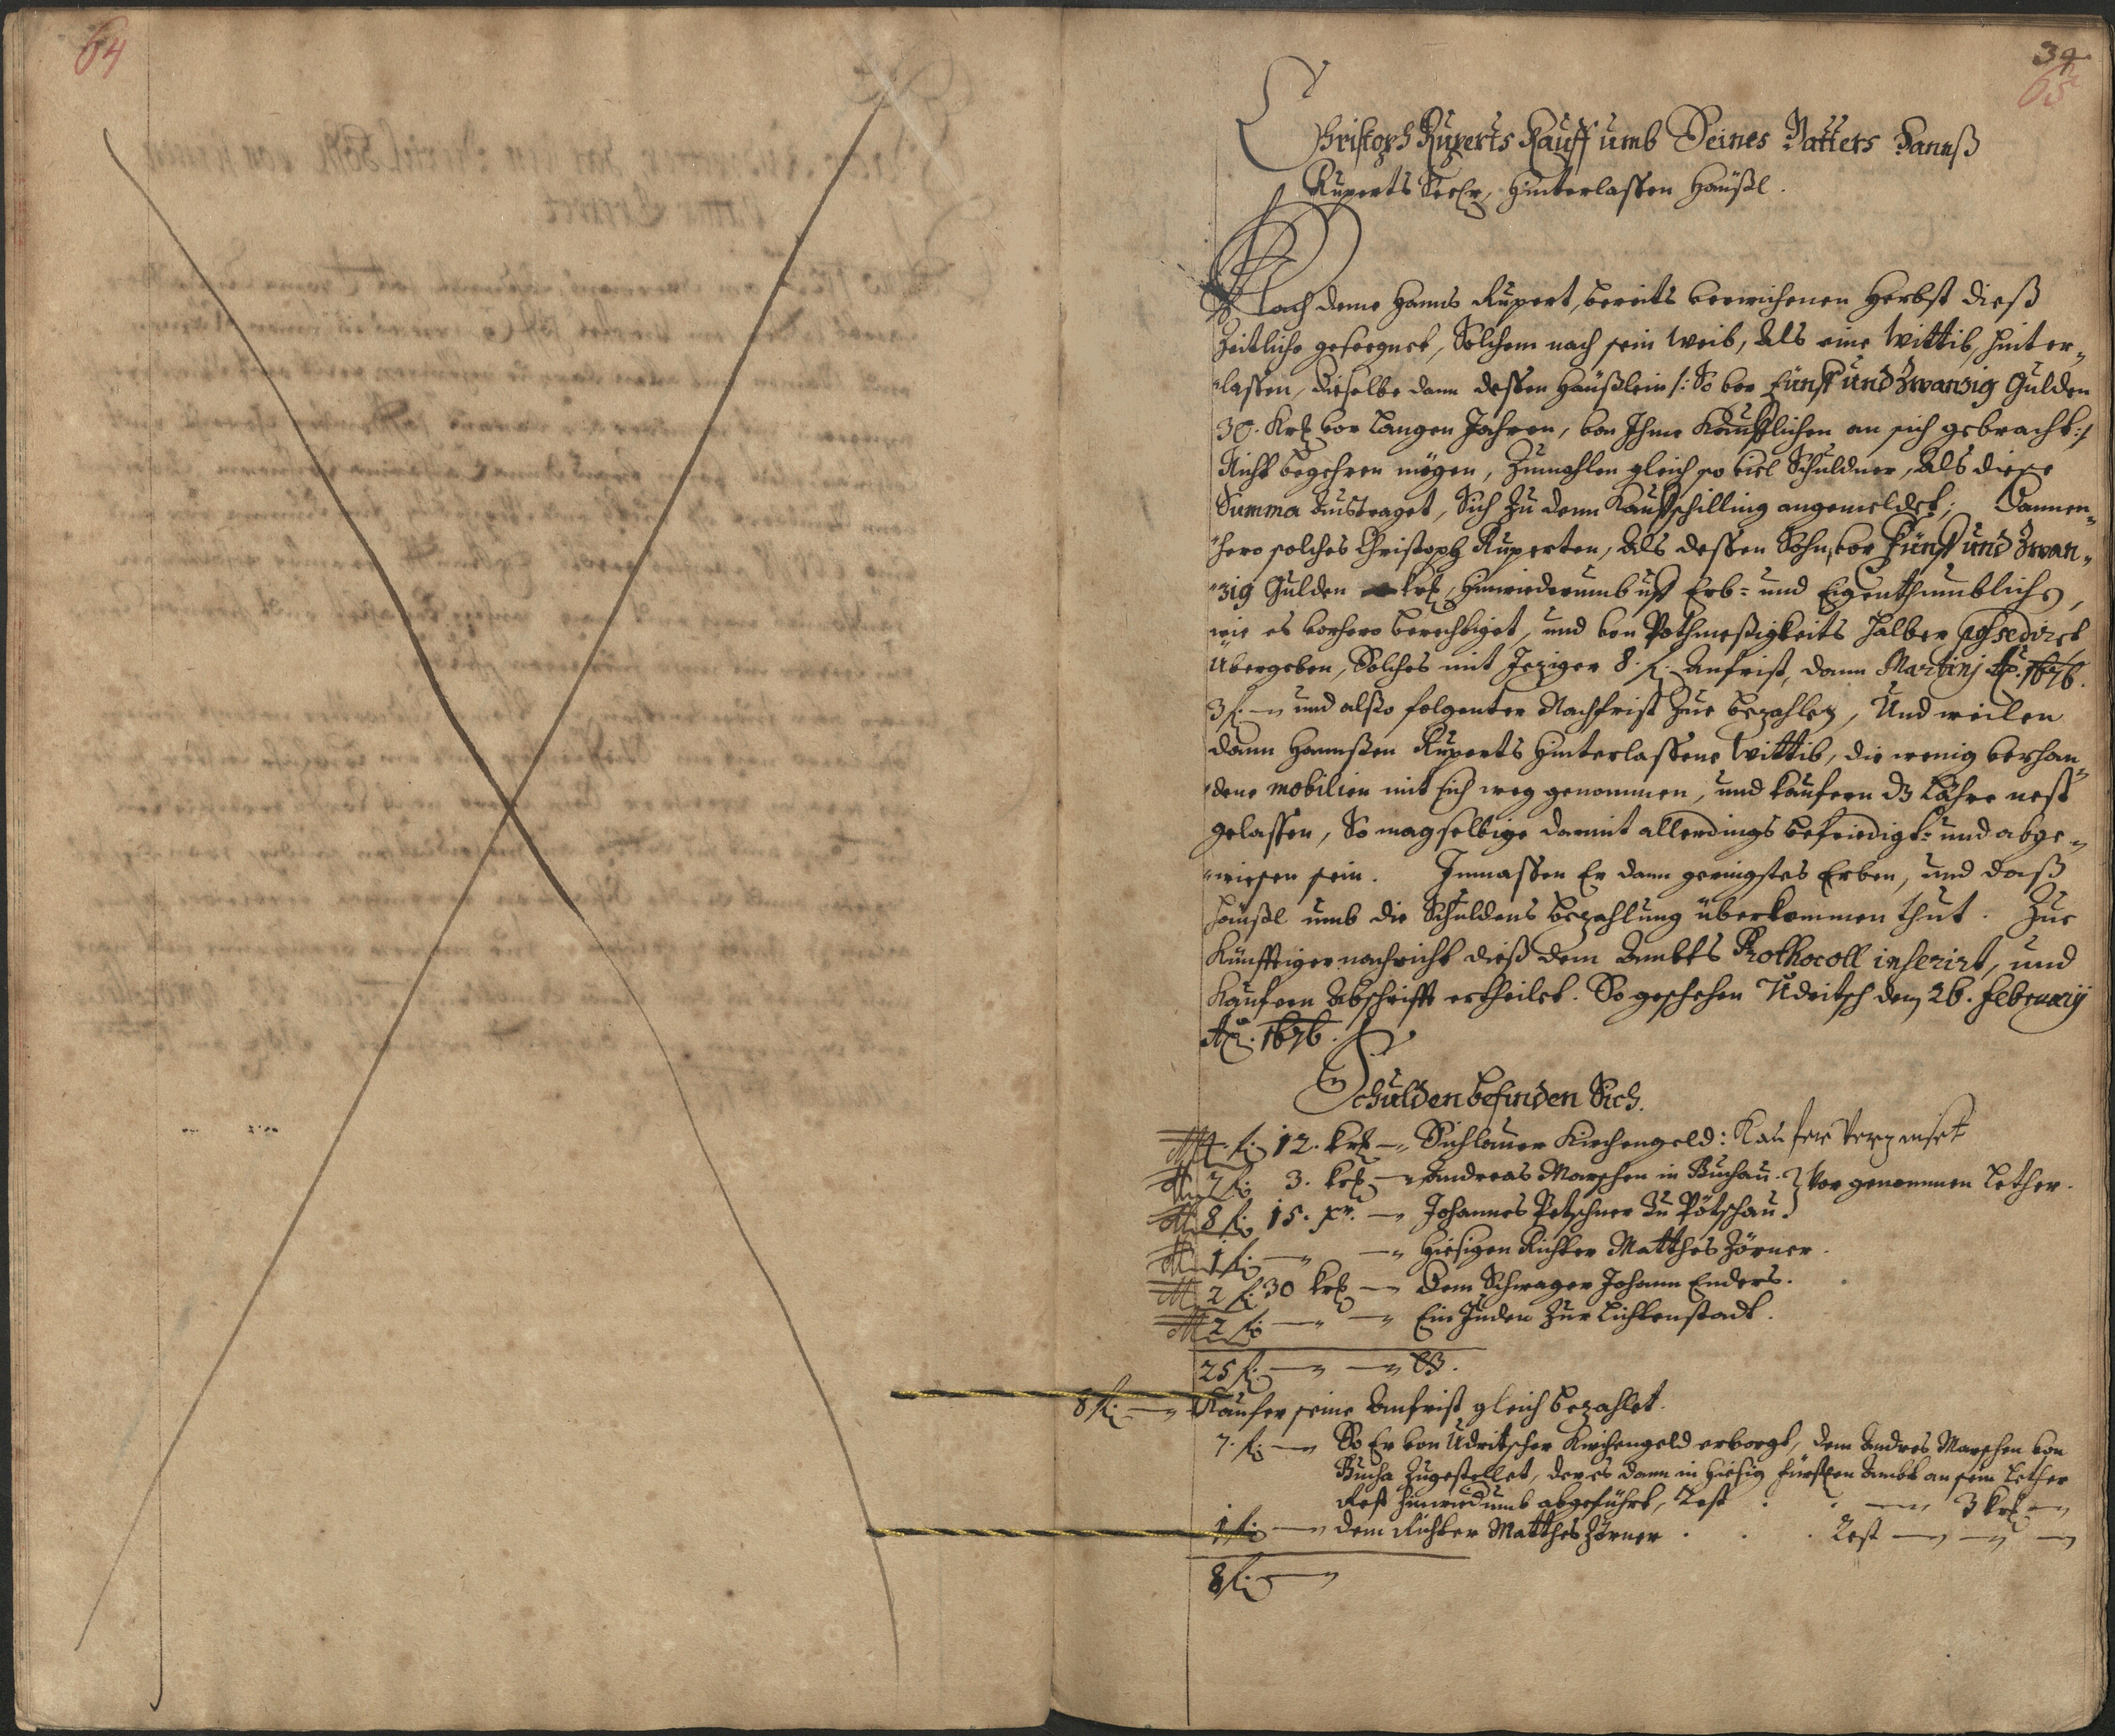 64
34
65
Christoph Ruperts Kauff umb Seines Vatters Hannß
Ruperts Seel: hinterlassen Häußl.
Nach deme Hanns Rupert, bereits verwichenen Herbst dieß
Zeitliche geseegnet, Solchem nach sein Weib, Als eine Wittib, hinter„
„lassen, dieselbe dann dessen Häußlein /: So vor Fünff und Zwanzig Gulden
30. Krl vor Langen Jahren, von Ihme Kaufflichen an sich gebracht :/
Nicht begehren mögen, Zumahlen gleich so viel Schuldner, Als diese
Summa Austraget, Sich Zu dem Kauffschilling angemeldet; Dannen„
„hero solches Christoph Ruperten, Als dessen Sohn, vor Fünff und Zwan„
„zig Gulden krl, hinwiederumb uff Erb= und Eigenthumblich,
wie es vorhero berechtiget, und von Pothmeßigkeits halber
Übergeben, Solches mit Jeziger 8. fl: Anfrist, dann Martinj Ao. 1676.
3 fl: — und alßo folgenter Nachfrist Zue bezahlen, Und weilen
dann Hannßen Ruperts hinterlassene Wittib, die wenig verhan„
„dene mobilien mit sich weg genommen, und Kaufern dz Lähre nest
gelassen, So mag selbige damit allerdings befriedigt= und abge„
„wiesen sein. Inmassen Er dann geringstes Erben, und daß
Häußl umb die Schuldens bezahlung überkommen thut. Zue
Künfftiger nachricht dieß dem Ambts Prothocoll inserirt, und
Kaufern Abschrifft ertheilet. So geschehen Udritsch den 26. February
Ao. 1676.
Schulden befinden Sich.
4. fl: 12. krl — Sichlauer Kirchengeld: Kaufer
7 fl: 3. krl — Andreas Marschen in Buchau. } vor genommen Lether.
8 fl: 15. xr. — Johannes Petschner Zu Pötschau.
1 fl: — — Hiesigen Richter Matthes Zörner.
2 fl: 30 krl — Dem Schwager Johann Enders.
2 fl: — — Ein Juden Zur Lichtenstadt.
25 fl: — —
8 fl: — Kaufer seine Anfrist gleich bezahlet.
7. fl: — So Er von Udritscher Kirchengeld erborgt, dem Andres Marschen von
Bucha Zugestellet, der es dann in hiesig fürstlen Ambt an sein Lether
Rest hinwiedumb abgeführt, Rest . . — 3 krl —
1 fl: — dem Richter Matthes Zörner . . . Rest — — —
8 fl: —